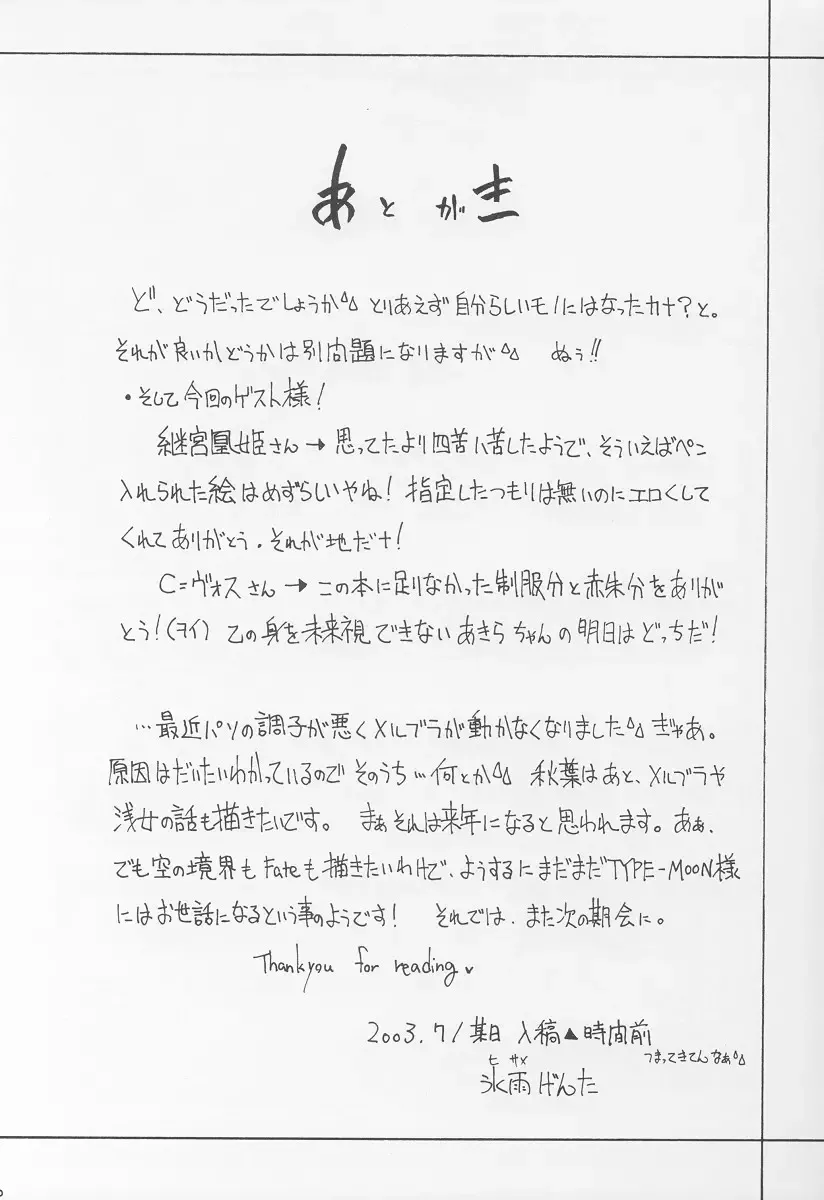 あとがき
ど、どうだったでしょうか^^; とりあえず自分らしいモノにはなったカナ?と。
それが良いかどうかは別問題になりますが^^; ぬぅ!!
・そして今回のゲスト様!
継宮凰姫さん → 思ってたより四苦八苦したようで、そういえばペン
入れられた絵はめずらしいやね! 指定したつもりは無いのにエロくして
くれてありがとう. それが地だナ!
C=ヴォスさん → この本に足りなかった制服分と赤朱分をありが
とう!(ヲイ) 乙の身を未来視できないあきらちゃんの明日はどっちだ!
…最近パソの調子が悪くメルブラが動かなくなりました^^; ぎゃあ。
原因はだいたいわかっているのでそのうち…何とか^^; 秋葉はあと、メルブラや
浅女の話も描きたいです。 まぁそれは来年になると思われます。あぁ、
でも空の境界もFateも描きたいわけで、ようするにまだまだTYPE-MOON様
にはお世話になるという事のようです! それでは、また次の期会に。
Thankyou for reading♥
2003.7/某日 入稿▲時間前
つまってきてんなぁ^^;
ヒサメ
氷雨げんた